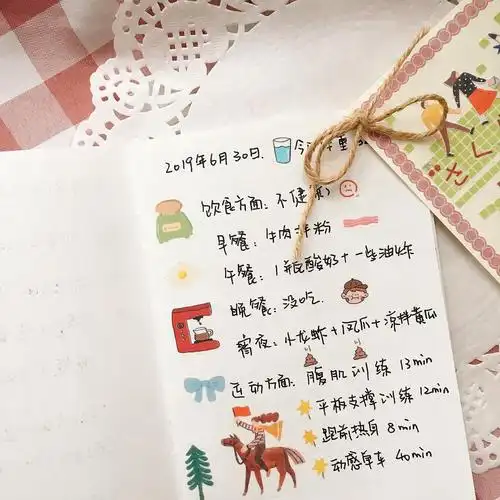 2019年6月30日. 今
饮食方面: 不健
早餐: 牛肉拌粉
午餐: 1瓶酸奶+一些油炸
晚餐: 没吃.
宵夜: 小龙虾+凤爪+凉拌黄瓜
运动方面: 腹肌训练 13min
平板支撑训练 12min
跑前热身 8min
动感单车 40min
さく